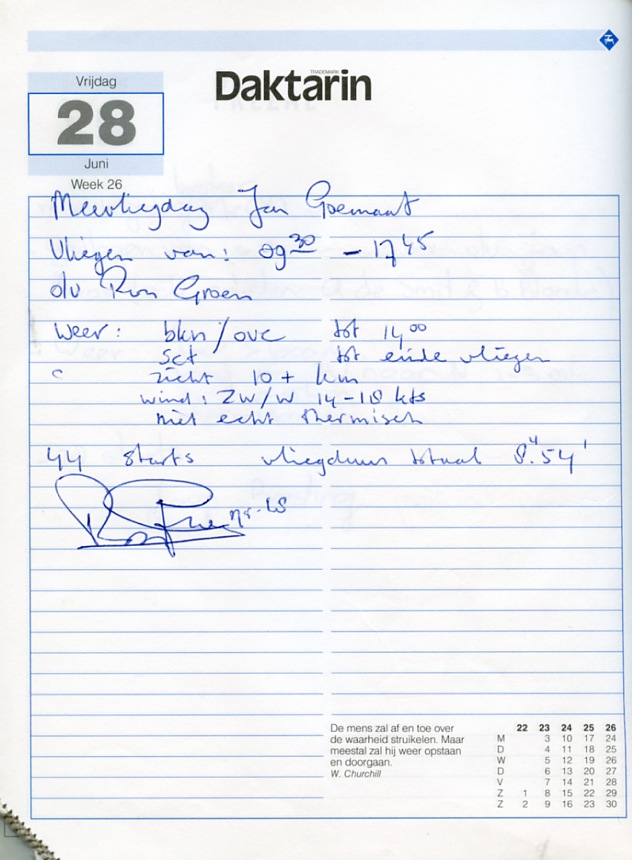 TRADEMARK
Daktarin
Vrijdag
28
Juni
Week 26
Meevliegdag Jan Goemaat
Vliegen van: 09 30 - 17 45
div Ron Groen
Weer: bkn/ovc tot 14 00
sct tot einde vliegen
zicht 10+ km
wind: ZW/W 14-18 kts
niet echt thermisch
44 starts vliegduur totaal 8."54'
De mens zal af en toe over
de waarheid struikelen. Maar
meestal zal hij weer opstaan
en doorgaan.
W. Churchill
22 23 24 25 26
M 3 10 17 24
D 4 11 18 25
W 5 12 19 26
D 6 13 20 27
V 7 14 21 28
Z 1 8 15 22 29
Z 2 9 16 23 30